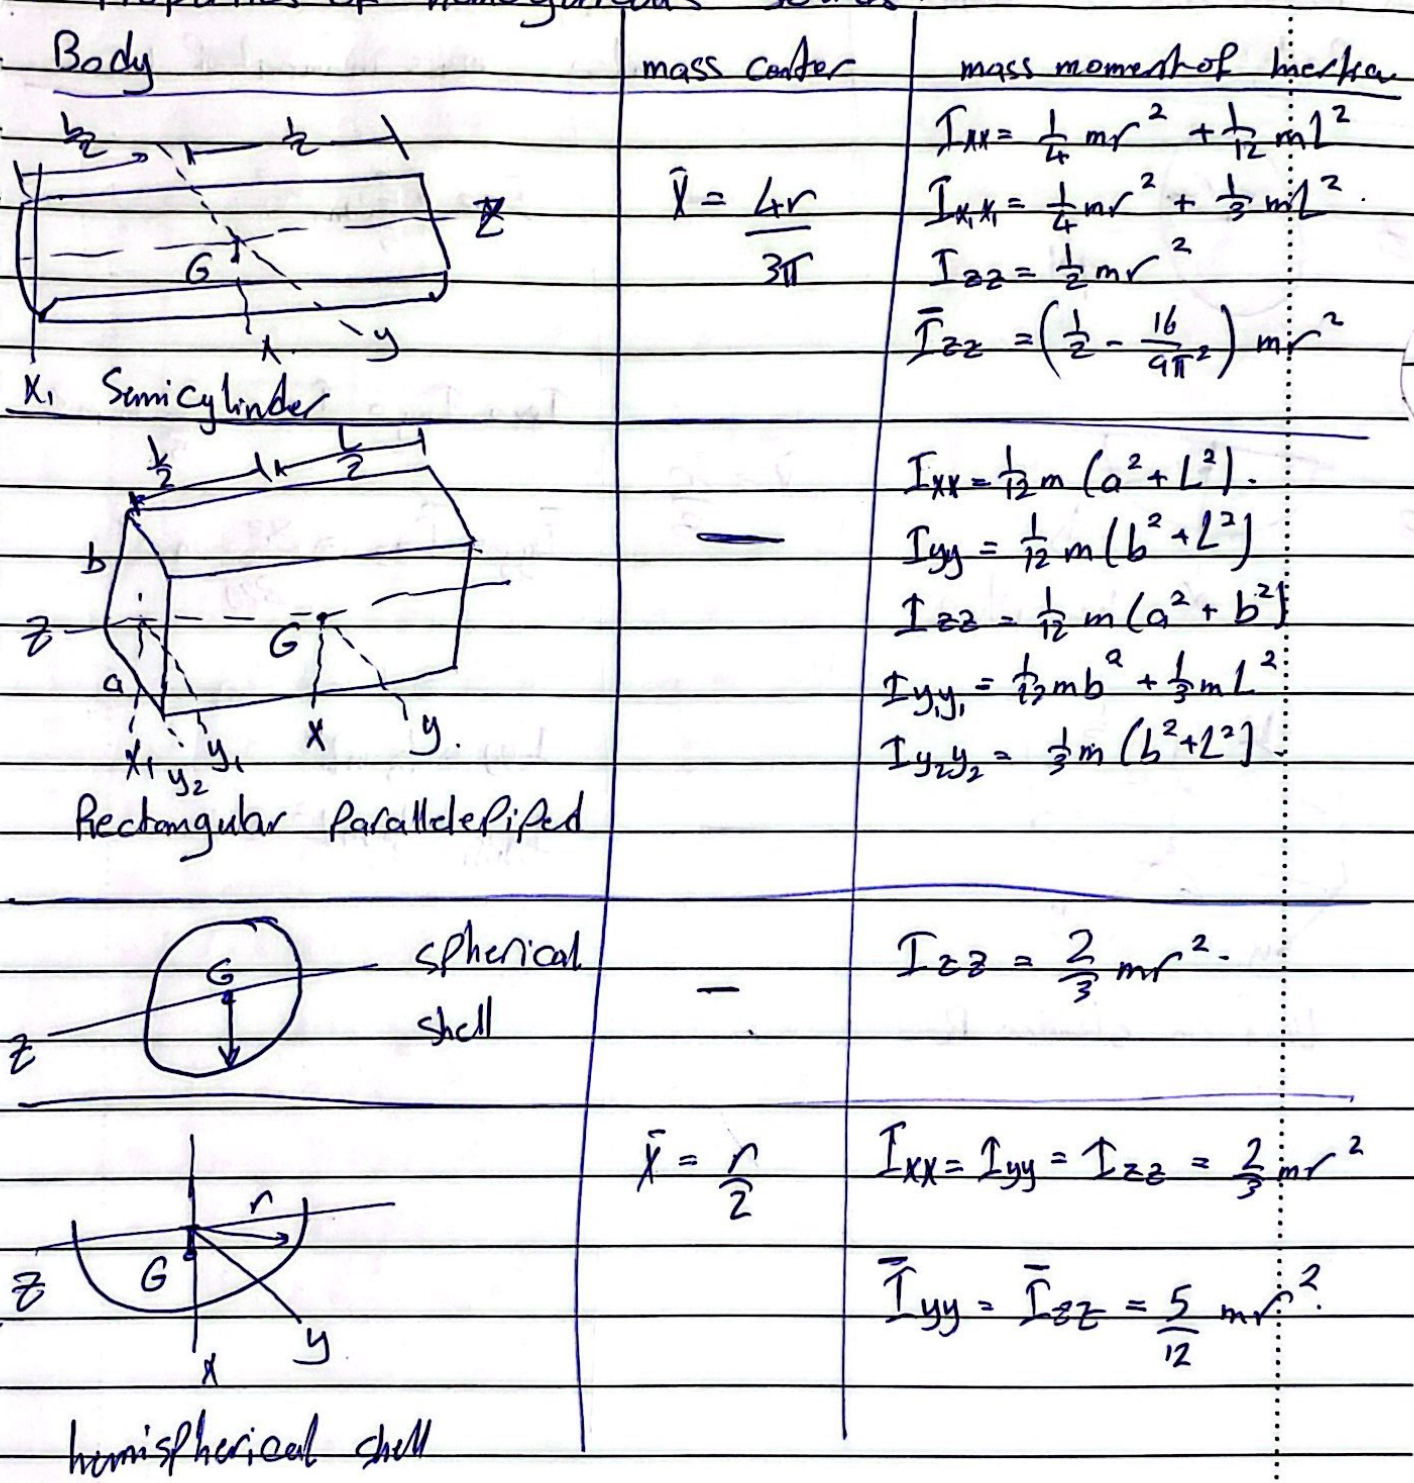 Properties of homogeneous solids
Body mass center mass moment of inertia
L/2 L/2
Z
G
X y
X₁ Semicylinder
X̄ = 4r/3π
Ixx = 1/4 mr² + 1/12 mL²
Ix₁x₁ = 1/4 mr² + 1/3 mL².
Izz = 1/2 mr²
Īzz = (1/2 - 16/9π²) mr²
L/2 L/2
b
Z G
a
X₁ y₂ y₁ X y.
Rectangular Parallelepiped
—
Ixx = 1/12 m (a² + L²).
Iyy = 1/12 m (b² + L²)
Izz = 1/12 m (a² + b²)
Iy₁y₁ = 1/12 mb² + 1/3 mL²
Iy₂y₂ = 1/3 m (b² + L²)
G spherical
Z shell
—
Izz = 2/3 mr².
r
Z G
y
X
hemispherical shell
X̄ = r/2
Ixx = Iyy = Izz = 2/3 mr²
Īyy = Īzz = 5/12 mr².